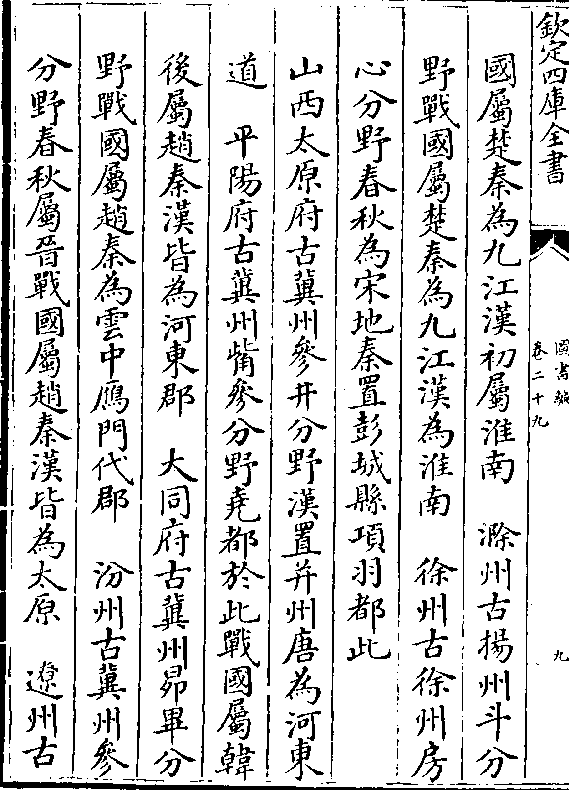 欽定四庫全書
圖書編
卷二十九
九
國屬楚秦為九江漢初屬淮南　滁州古揚州斗分
野戰國屬楚秦為九江漢為淮南　徐州古徐州房
心分野春秋為宋地秦置彭城縣項羽都此
山西太原府古冀州參井分野漢置并州唐為河東
道　平陽府古冀州觜參分野堯都於此戰國屬韓
後屬趙秦漢皆為河東郡　大同府古冀州昴畢分
野戰國屬趙秦為雲中鴈門代郡　汾州古冀州參
分野春秋屬晉戰國屬趙秦漢皆為太原　遼州古